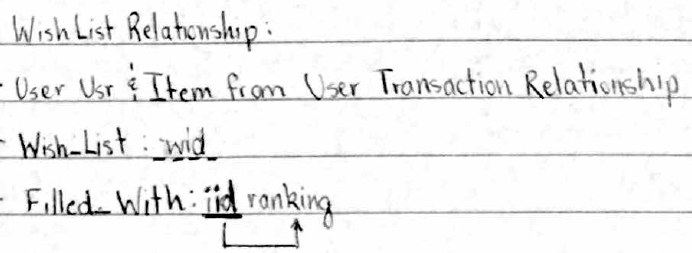 Wish List Relationship:
- User Usr & Item from User Transaction Relationship
- Wish_List : wid
- Filled_With: iid ranking